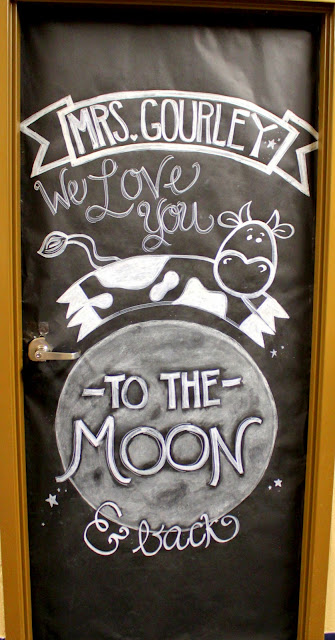 MRS. GOURLEY
We Love
You
-TO THE-
MOON
& back